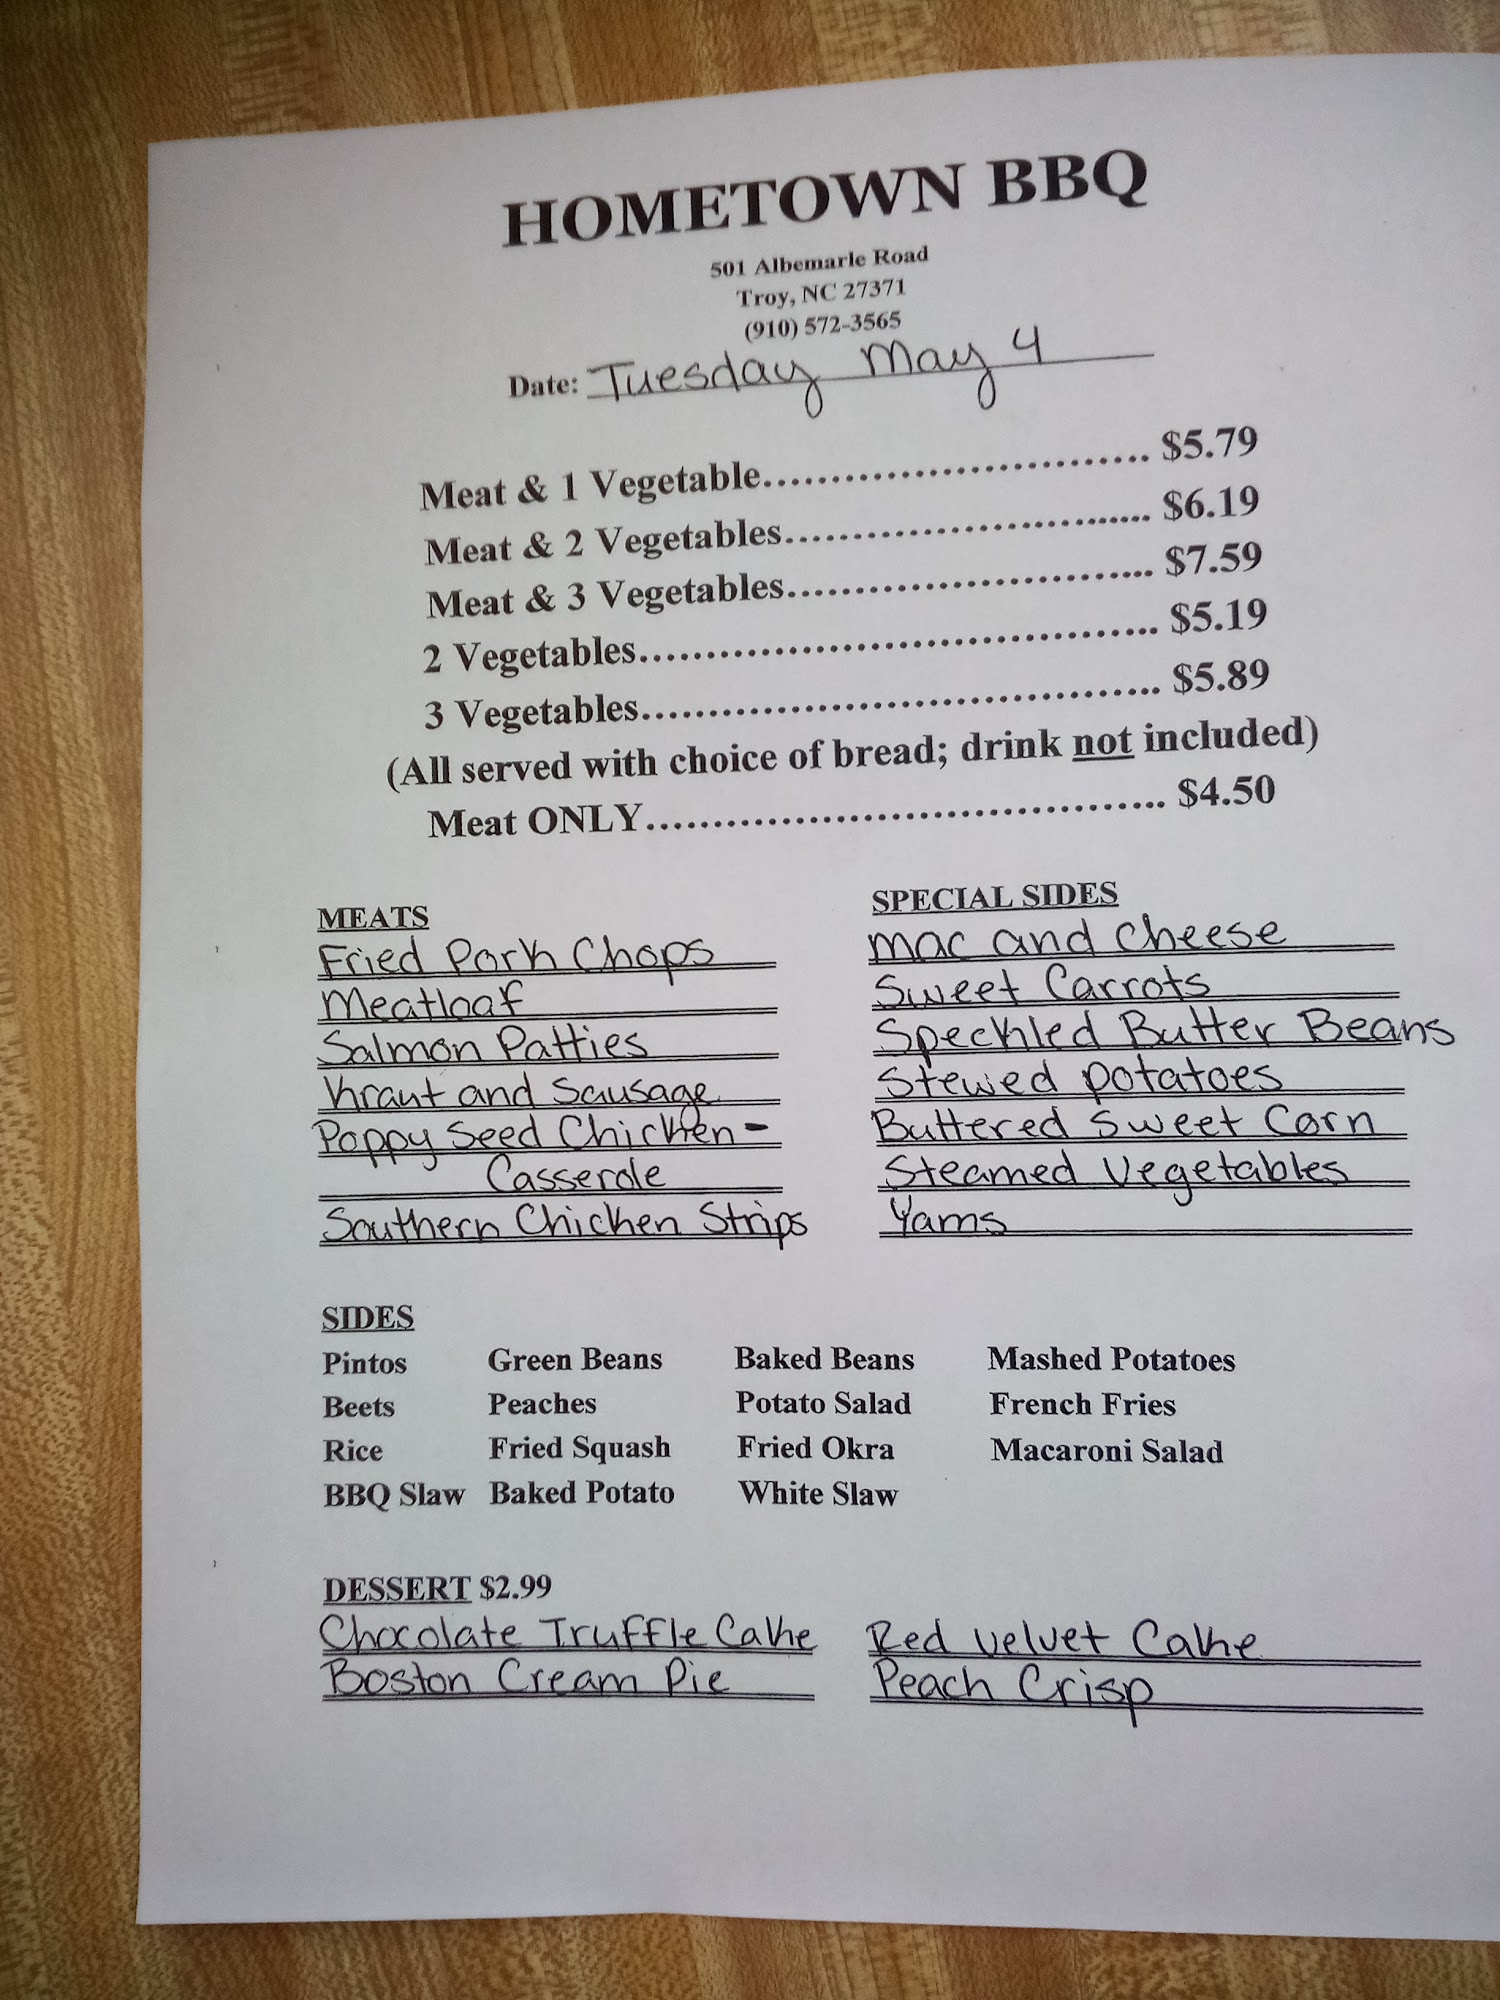 HOMETOWN BBQ
501 Albemarle Road
Troy, NC 27371
(910) 572-3565
Date: Tuesday May 4
Meat & 1 Vegetable............................ $5.79
Meat & 2 Vegetables............................ $6.19
Meat & 3 Vegetables............................ $7.59
2 Vegetables....................................... $5.19
3 Vegetables....................................... $5.89
(All served with choice of bread; drink not included)
Meat ONLY....................................... $4.50
MEATS
Fried Pork Chops
Meatloaf
Salmon Patties
Kraut and Sausage
Poppy Seed Chicken-
Casserole
Southern Chicken Strips
SPECIAL SIDES
Mac and Cheese
Sweet Carrots
Speckled Butter Beans
Stewed Potatoes
Buttered Sweet Corn
Steamed Vegetables
Yams
SIDES
Pintos Green Beans Baked Beans Mashed Potatoes
Beets Peaches Potato Salad French Fries
Rice Fried Squash Fried Okra Macaroni Salad
BBQ Slaw Baked Potato White Slaw
DESSERT $2.99
Chocolate Truffle Cake Red Velvet Cake
Boston Cream Pie Peach Crisp